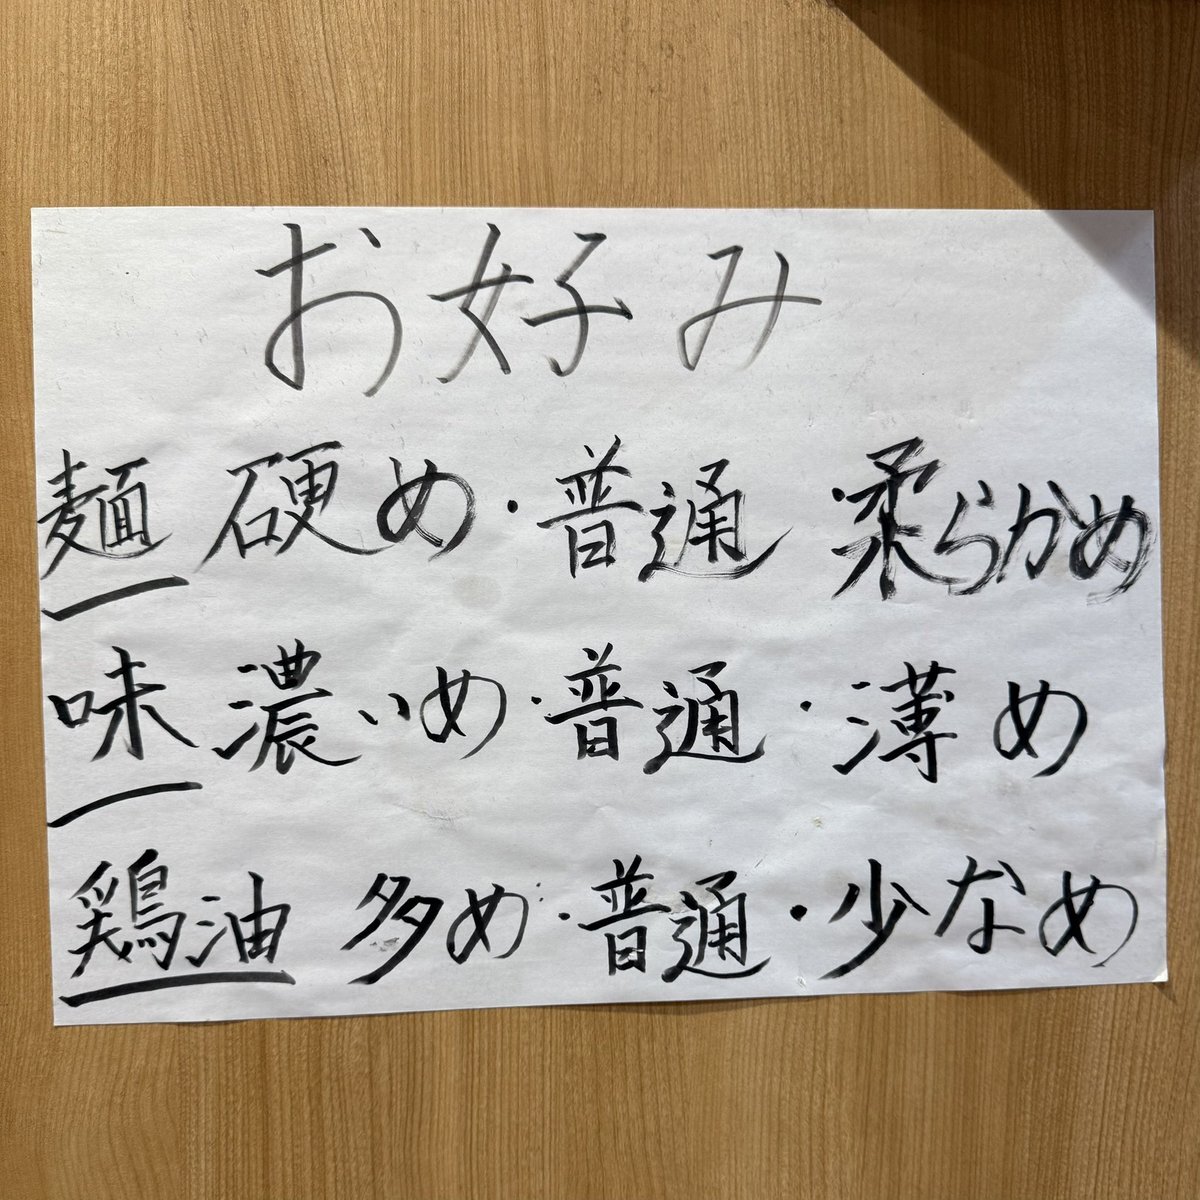 お好み
麺 硬め・普通・柔らかめ
味 濃いめ・普通・薄め
鶏油 多め・普通・少なめ